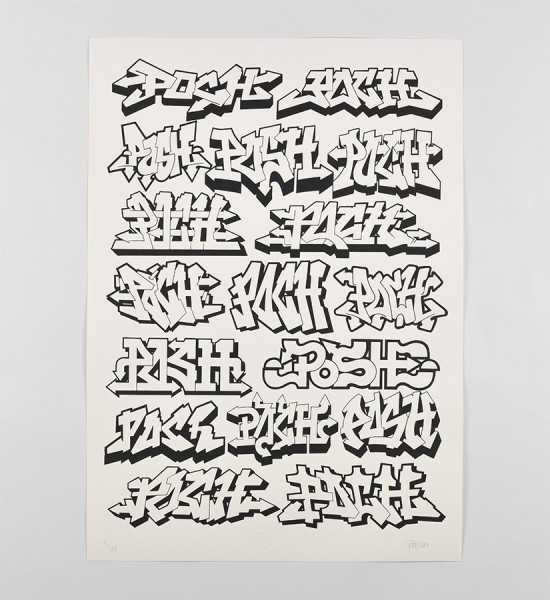 POCH POCH
POSH POSH POCH
POCH POCH
POCH POCH POCH
POSH POSH
POCH POCH POSH
POCH POCH